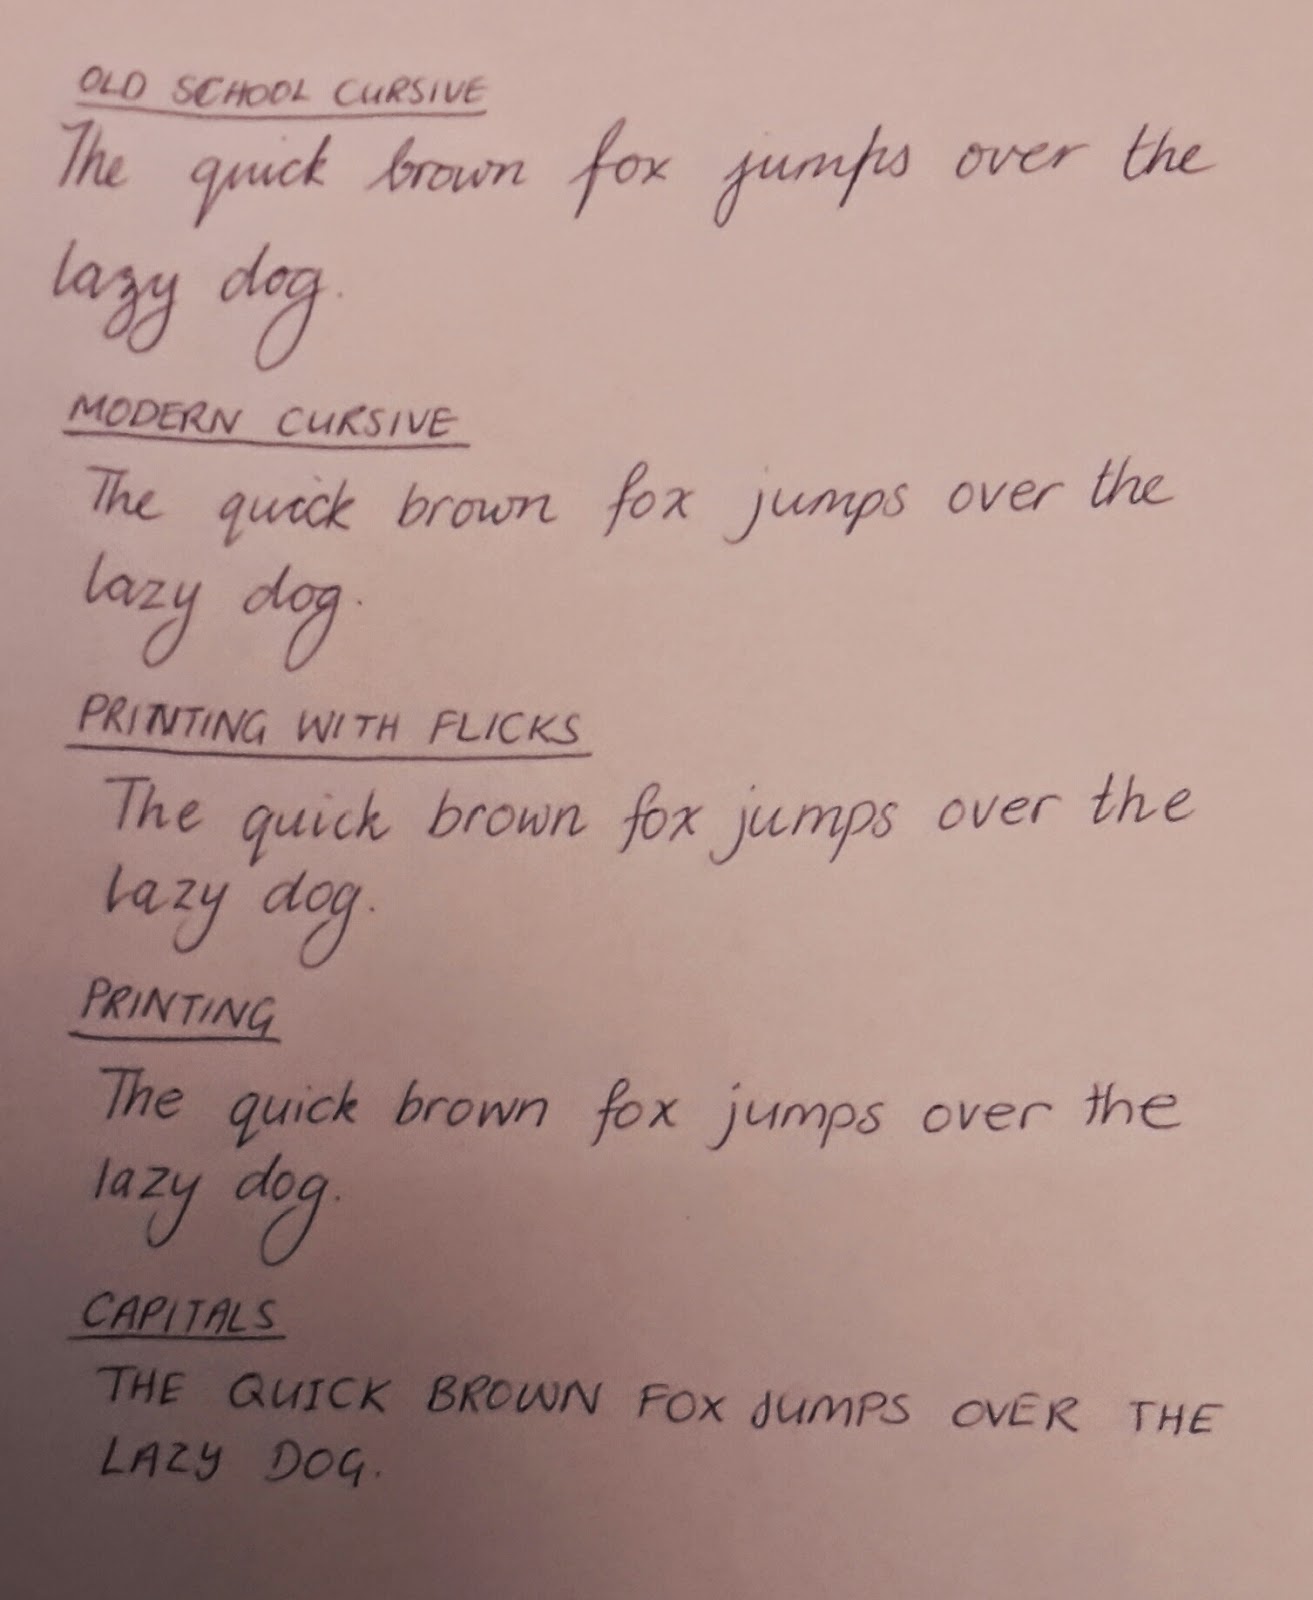 OLD SCHOOL CURSIVE
The quick brown fox jumps over the
lazy dog.
MODERN CURSIVE
The quick brown fox jumps over the
lazy dog.
PRINTING WITH FLICKS
The quick brown fox jumps over the
lazy dog.
PRINTING
The quick brown fox jumps over the
lazy dog.
CAPITALS
THE QUICK BROWN FOX JUMPS OVER THE
LAZY DOG.